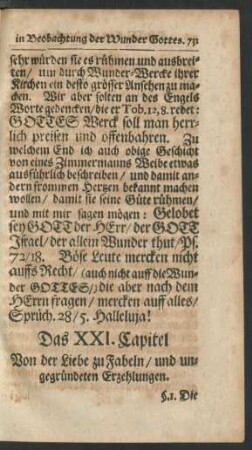 in Beobachtung der Wunder Gottes. 731
sehr würden sie es rühmen und ausbrei-
ten/ um durch Wunder-Wercke ihrer
Kirchen ein desto grösser Ansehen zu ma-
chen. Wir aber solten an des Engels
Worte gedencken/ die er Tob. 12, 8. redet:
GOTTES Werck soll man herr-
lich preisen und offenbahren. Zu
welchem End ich auch obige Geschicht
von eines Zimmermanns Weibe etwas
ausführlich beschreiben/ und damit an-
dern frommen Hertzen bekannt machen
wollen/ damit sie seine Güte rühmen/
und mit mir sagen mögen: Gelobet
sey GOTT der HErr/ der GOTT
Israel/ der allein Wunder thut/ Ps.
72/18. Böse Leute mercken nicht
auffs Recht/ (auch nicht auff die Wun-
der GOTTES/) die aber nach dem
HErrn fragen/ mercken auff alles/
Sprüch. 28/5. Halleluja!
Das XXI. Capitel
Von der Liebe zu Fabeln/ und un-
gegründeten Erzehlungen.
§.1. Die